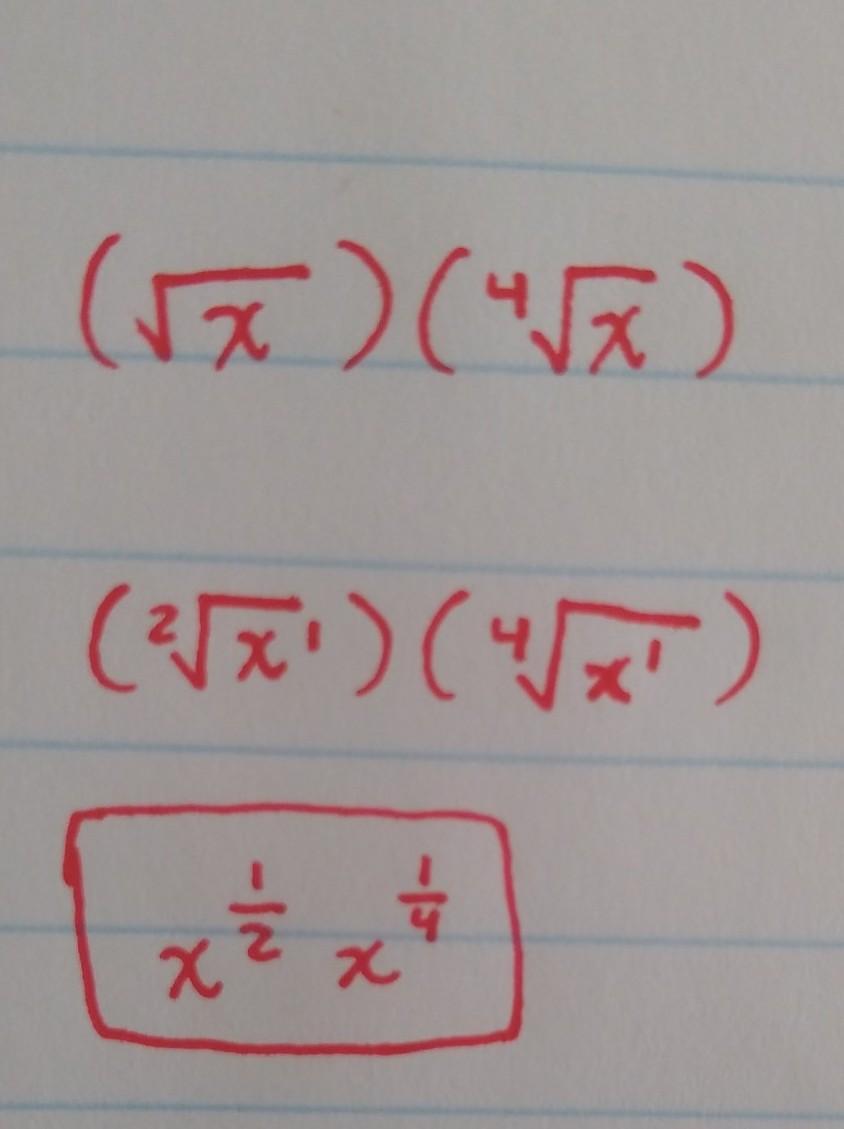 (√x)(⁴√x)
(²√x¹)(⁴√x¹)
x^(1/2) x^(1/4)